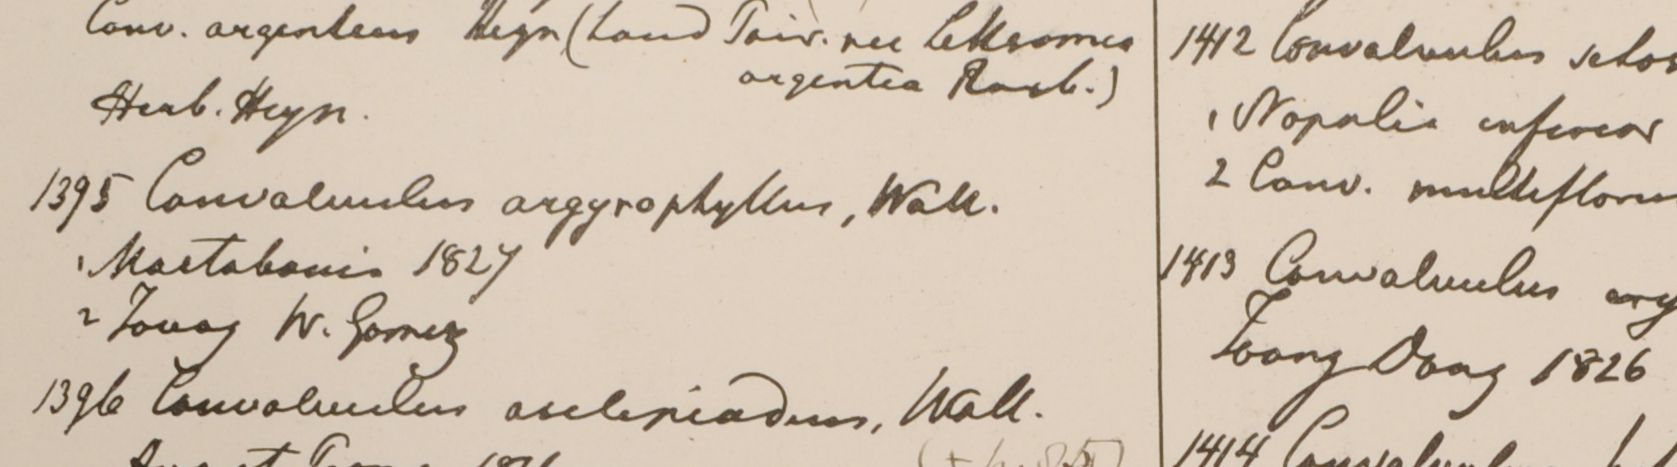 Conv. argenteus Heyn (haud Poir. nec Lettsomia
argentea Roxb.)
Herb. Heyn.
1395 Convolvulus argyrophyllus, Wall.
1 Martabania 1827
2 Tavoy W. Gomez
1396 Convolvulus asclepiadeus, Wall.
1412 Convolvulus setos
1 Napalia inferior
2 Conv. multiflorus
1413 Convolvulus arg
Toong Dong 1826
1414 Convolvulus